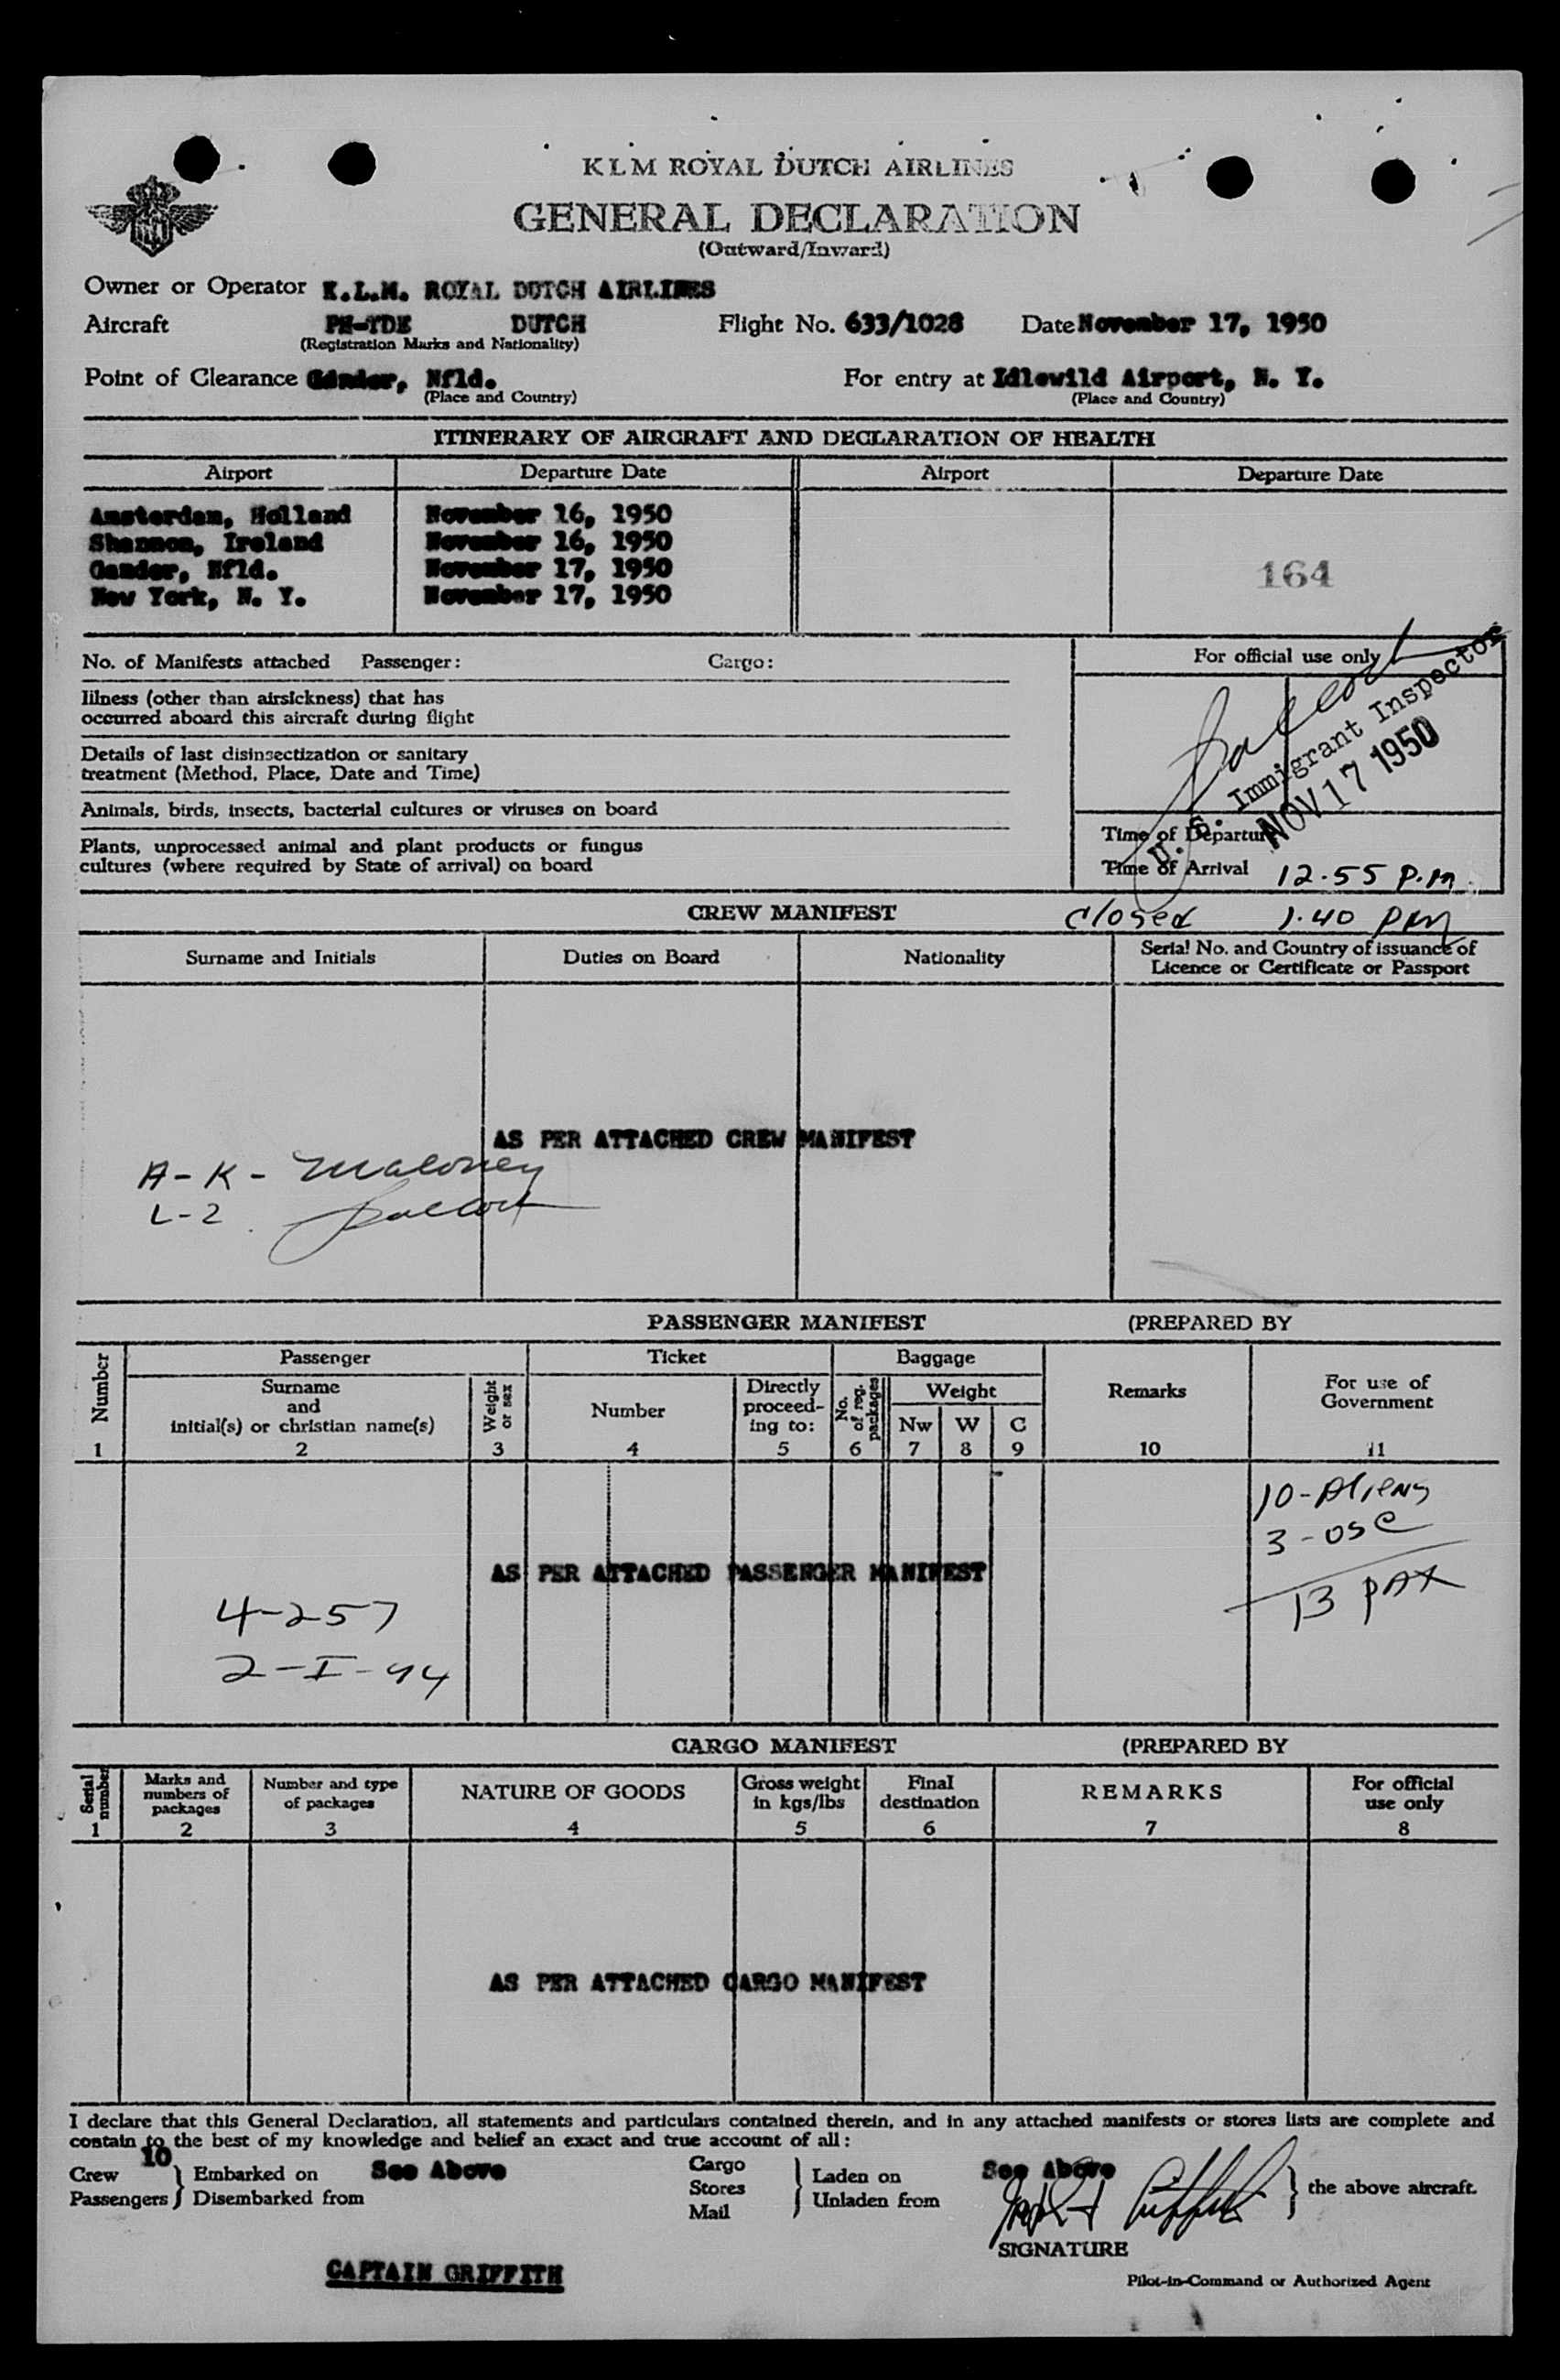 KLM ROYAL DUTCH AIRLINES
GENERAL DECLARATION
(Outward/Inward)
Owner or Operator K.L.M. ROYAL DUTCH AIRLINES
Aircraft DUTCH Flight No. 633/1028 Date November 17, 1950
(Registration Marks and Nationality)
Point of Clearance Gander, Nfld. For entry at Idlewild Airport, N. Y.
(Place and Country) (Place and Country)
ITINERARY OF AIRCRAFT AND DECLARATION OF HEALTH
Airport Departure Date Airport Departure Date
Amsterdam, Holland November 16, 1950
Shannon, Ireland November 16, 1950
Gander, Nfld. November 17, 1950
New York, N. Y. November 17, 1950
164
No. of Manifests attached Passenger: Cargo:
For official use only
Illness (other than airsickness) that has
occurred aboard this aircraft during flight
Details of last disinsectization or sanitary
treatment (Method, Place, Date and Time)
U. S. Immigrant Inspector
NOV 17 1950
Animals, birds, insects, bacterial cultures or viruses on board
Plants, unprocessed animal and plant products or fungus
cultures (where required by State of arrival) on board
Time of Departure
Time of Arrival 12.55 P.M.
Closed 1.40 PM
CREW MANIFEST
Surname and Initials Duties on Board Nationality Serial No. and Country of issuance of
Licence or Certificate or Passport
AS PER ATTACHED CREW MANIFEST
A-K- Maloney
L-2
PASSENGER MANIFEST (PREPARED BY
Number Passenger Ticket Baggage Remarks For use of
Government
Surname
and
initial(s) or christian name(s)
Weight
or sex
Number
Directly
proceed-
ing to:
No.
of reg.
packages
Weight
Nw W C
1 2 3 4 5 6 7 8 9 10 11
10-Aliens
3-USC
13 PAX
AS PER ATTACHED PASSENGER MANIFEST
4-257
2-I-94
CARGO MANIFEST (PREPARED BY
Serial
number
Marks and
numbers of
packages
Number and type
of packages
NATURE OF GOODS
Gross weight
in kgs/lbs
Final
destination
REMARKS
For official
use only
1 2 3 4 5 6 7 8
AS PER ATTACHED CARGO MANIFEST
I declare that this General Declaration, all statements and particulars contained therein, and in any attached manifests or stores lists are complete and
contain to the best of my knowledge and belief an exact and true account of all:
10
Crew } Embarked on See Above Cargo } Laden on See Above } the above aircraft.
Passengers } Disembarked from Stores Unladen from
Mail
SIGNATURE
CAPTAIN GRIFFITH
Pilot-in-Command or Authorized Agent